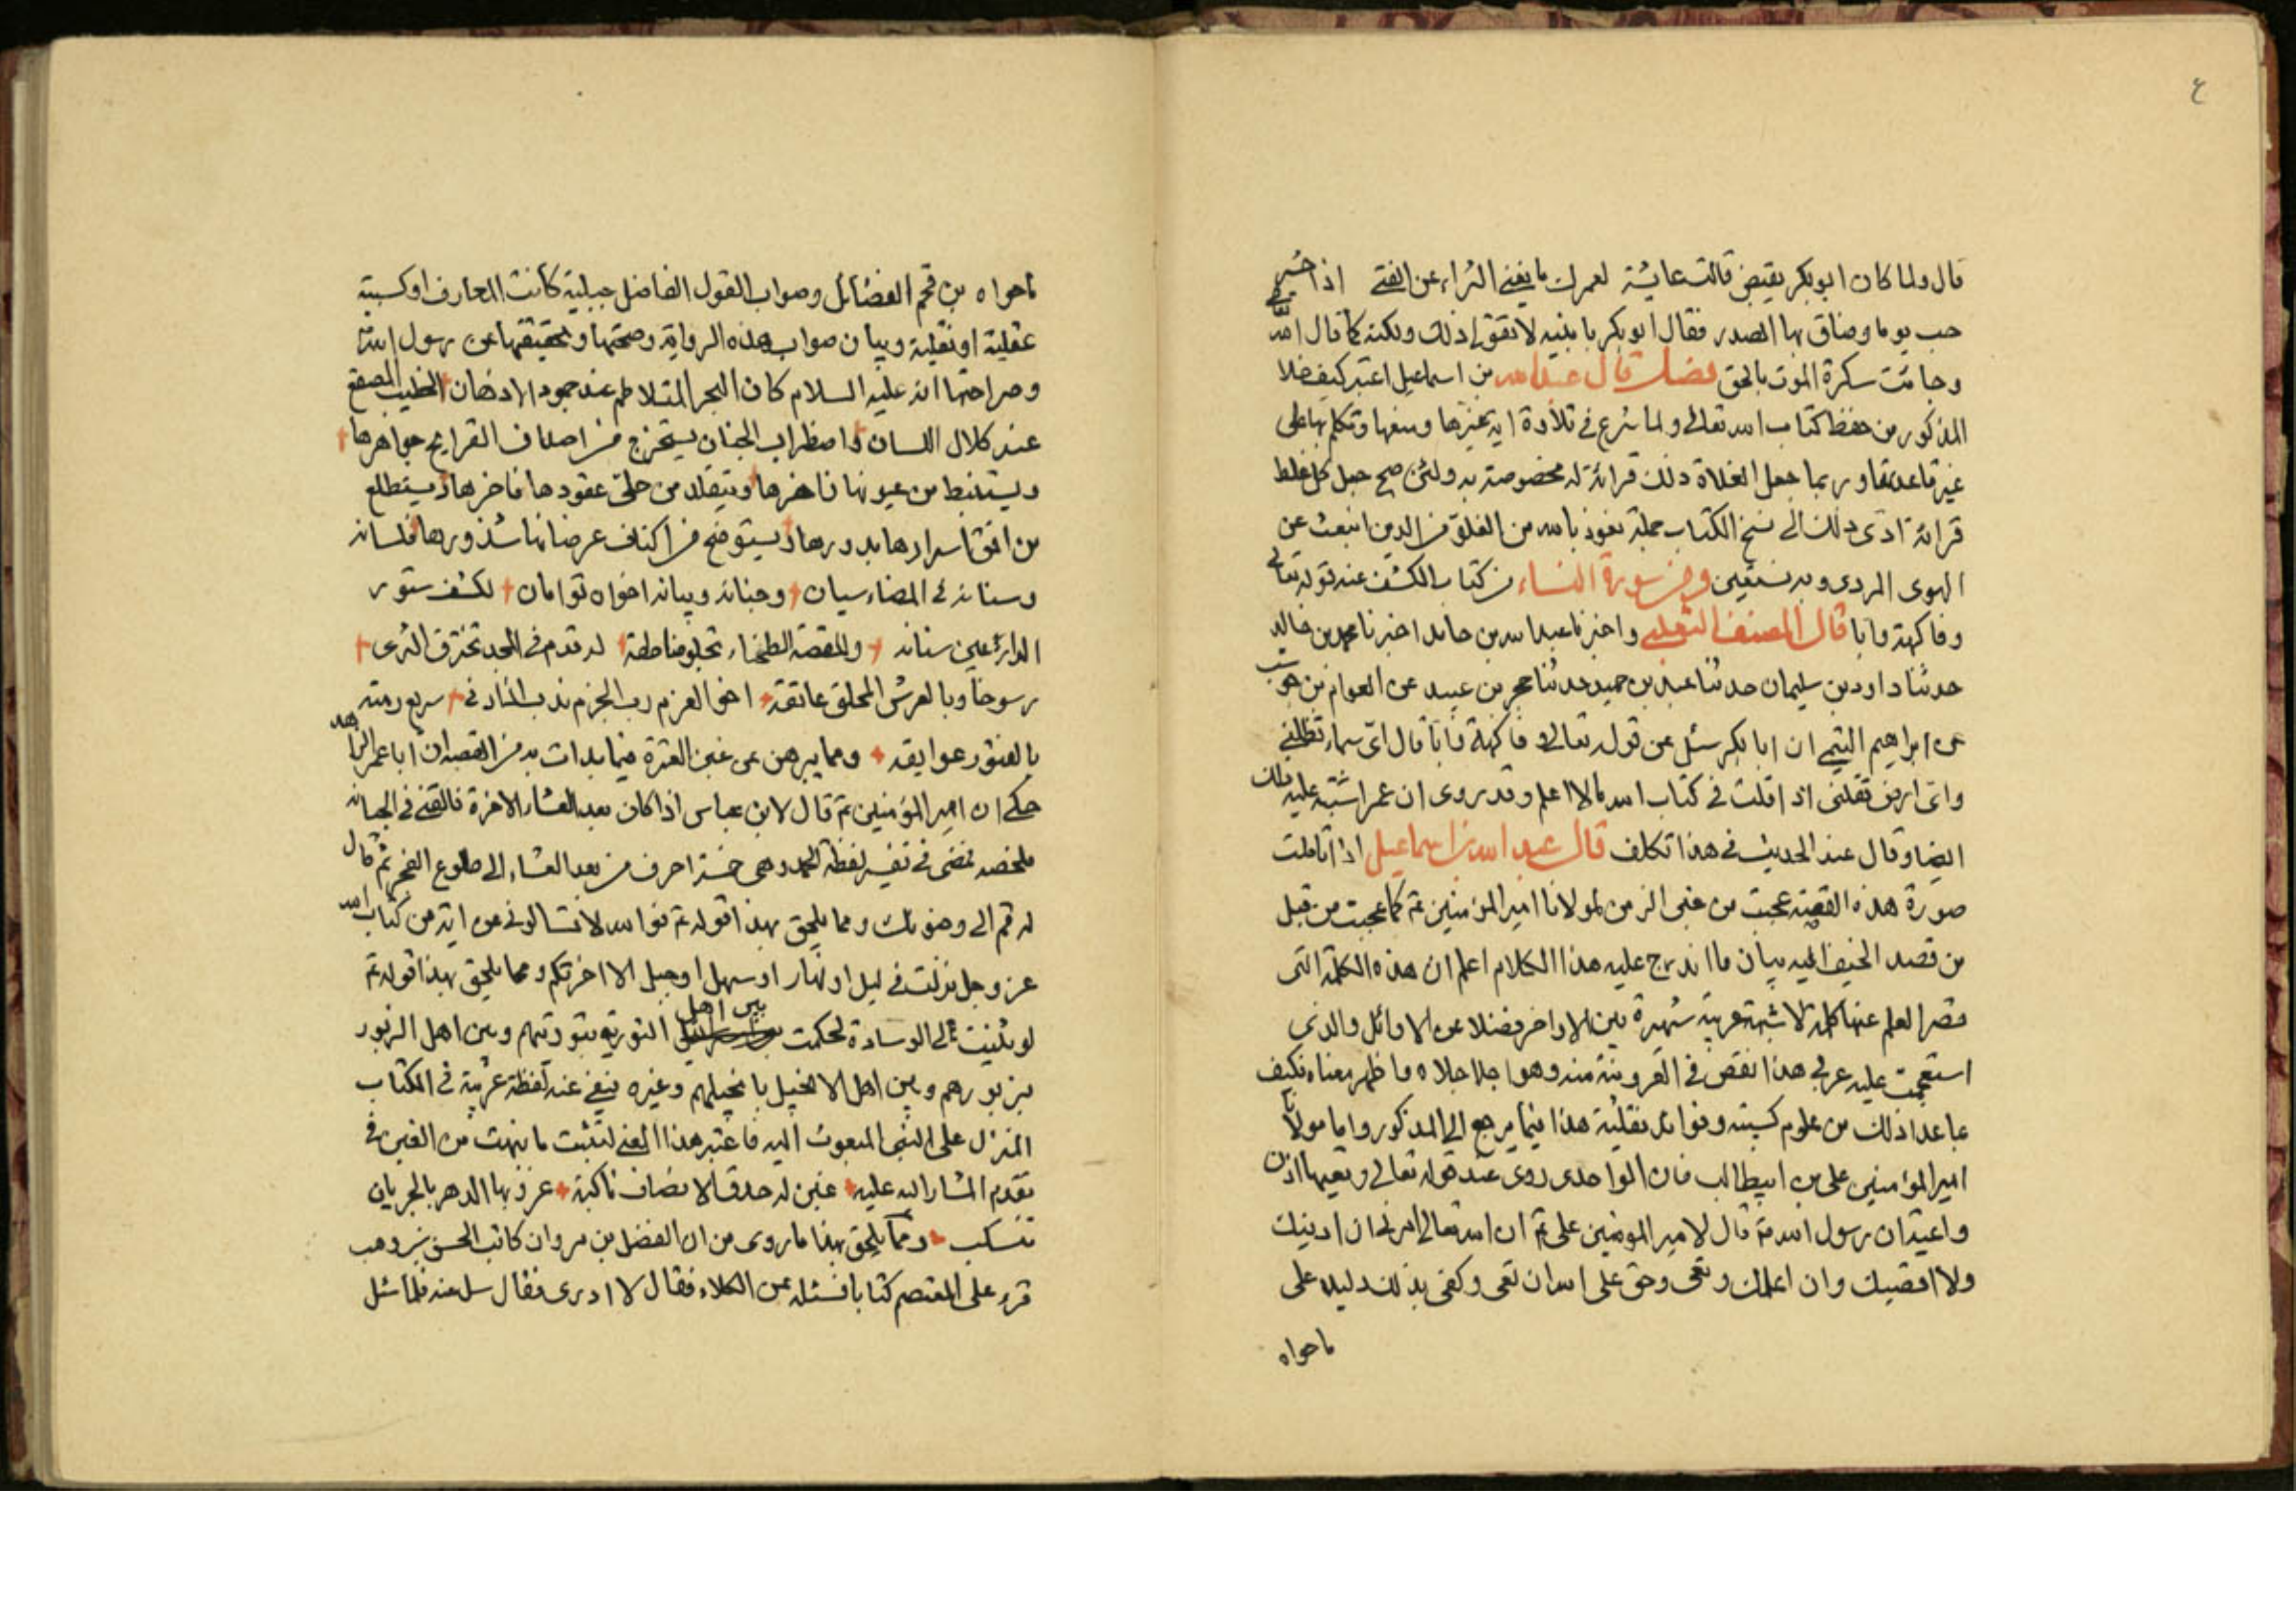 ٤
قال ولما كان ابوبكر يقبض قالت عايشة لعمرك ما يغني الثراء عن الفتى اذا حشرجت
يوما وضاق بها الصدر فقال ابوبكر يا بنيه لا تقولى ذلك ولكنه كما قال الله
وجائت سكرة الموت بالحق فصل قال عبدالله بن اسماعيل اعتبر كيف خلا
المذكور من حفظ كتاب الله تعالى ولما شرع في تلاوة اية غيرها وتكلم بها على
غير قاعدتها وربما جعل الغلاة ذلك قرائة له مخصوصة به ولئن صح جعل كل غلط
قرائة ادى ذلك الى نسخ الكتاب جملة نعوذ بالله من الغلو في الدين انبعث عن
الهوى المردى وبه نستعين ومن سورة النساء من كتاب الكشف عند قوله تعالى
وفاكهة وابا قال المصنف الثعلبى واخبرنا عبدالله بن حامد اخبرنا محمد بن خالد
حدثنا داود بن سليمان حدثنا عبد بن حميد حدثنا محمد بن عبيد عن العوام بن حوشب
عن ابراهيم التيمي ان ابا بكر سئل عن قوله تعالى وفاكهة وابا قال اى سماء تظلنى
واى ارض تقلنى اذا قلت في كتاب الله ما لا اعلم وقد روى ان عمر اشتبه عليه ذلك
ايضا وقال عند الحديث في هذا تكلف قال عبد الله بن اسماعيل اذا تاملت
صورة هذه القصة عجبت من غبى الزمن لمولانا امير المؤمنين ع كما عجبت من قبل
من قصد الحيف اليه بيان ما اندرج عليه هذا الكلام اعلم ان هذه الكلمة التى
قصر العلم عنها كلمة لا شبهة عربية شهيرة بين الاواخر فضلا عن الاوائل والذى
استعجمت عليه عربى هذا نقص في الغريزية منه وهو اجلا جلاه وما ظهر معناه فكيف
بما عدا ذلك من علوم كسبية وفوائد نقلية هذا فيما يرجع الى المذكور واما مولانا
امير المؤمنين على بن ابيطالب فان الواحدى روى عند قوله تعالى وتعيها اذن
واعية ان رسول الله ص قال لامير المؤمنين على ع ان الله تعالى امرنى ان ادنيك
ولا اقصيك وان اعلمك وتعى وحق على الله ان تعى وكفى بذلك دليلا على
ماحواه
ماحواه من قمم الفضائل وصواب القول الفاضل جبلية كانت المعارف او كسبية
عقلية او نقلية وبيان صواب هذه الرواية وصحتها وتحقيقها عن رسول الله
وصراحتها انه عليه السلام كان البحر المتلاطم عند جمود الاذهان الخطيب المصقع
عند كلال اللسان واضطراب الجنان يستخرج من اصداف القرايح جواهرها
ويستنبط من عيونها فاخرها ويتقلد من حلى عقودها فاخرها ويستطلع
من افق اسرارها بدورها ويستوضح من اكناف عرصاتها شذورها فلسانه
وسنانه في المضاء سيان وجنانه وبيانه اخواه توامان لكشف ستور
الدارعين سنانه وللقصة الطخياء تجلو مناطقه له قدم في المجد تخترق الثرى
رسوخا وبالعرش المحلق عاتقه اخو العزم رب الحزم ندب اذا دنى سريع رمته
بالعثور عوايقه ومما يبرهن عن غبن العترة فيما بدات به من القصة ان ابا عمر الزاهد
حكى ان امير المؤمنين ع قال لابن عباس اذا كان بعد العشاء الاخرة فالقنى في الجبانة
ملخصه فمضى في تفسير لفظة الحمد وهى خمسة احرف من بعد العشاء الى طلوع الفجر ثم قال
له قم الى وضوئك ومما يلحق بهذا قوله ع فوالله لا تسالونى عن اية من كتاب الله
عز وجل نزلت في ليل او نهار او سهل او جبل الا اخبرتكم ومما يلحق بهذا قوله ع
لو ثنيت لى الوسادة لحكمت بين اهل التورية بتوريتهم وبين اهل الزبور
بزبورهم وبين اهل الانجيل بانجيلهم وغيره ينبى عند لفظة عربية في الكتاب
المنزل على النبى المبعوث اليه فاعتبر هذا المعنى لتثبت ما نبهت من الغبن في
تقدم المشار اليه عليه غبن له حدق الانصاف باكية غزو بها الدهر بالجريان
تنسكب ومما يلحق بهذا ما روى من ان الفضل بن مروان كاتب الحسن بن وهب
قرء على المعتصم كتابا فسئله عن الكلاء فقال لا ادرى فقال سل عنه فلما سئل